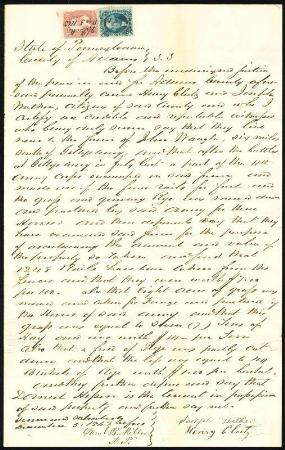 State of Pennsylvania,
County of Adams } S.S
Before the undersigned Justice
of the peace in and for Adams County
personally came Henry Clutz and Joseph
citizens of said County and who I
certify are credible and reputable witnesses
who being duly sworn say that they live
near to the farm of John six miles
north of Gettysburg and that after the battle
at Gettysburg in July last a part of the 11th
Army Corps encamped on said farm and
made use of the fence rails for fuel and
the grass and growing Rye was mowed down
and pastured by said Army for their
Horses and they further say that they
have examined said farm for the purpose
of ascertaining the amount and value of
the property so taken and find that
1248 Rails have been taken from the
fences and that they are worth
per 100. also that eight acres of grass was
mowed and taken for Forage and pastured by
the Horses of said army and that this
grass was equal to Seven (7) Tons of
Hay and was worth per Ton
also that a field of Rye was partly cut
down and that the loss was equal to 40
Bushels of Rye worth per bushel.
and they further depose and say that
Daniel is the tenant in possession
of said property and further say not.
Sworn and subscribed
December 5, 1863 before
J.P.
Joseph
Henry Clutz